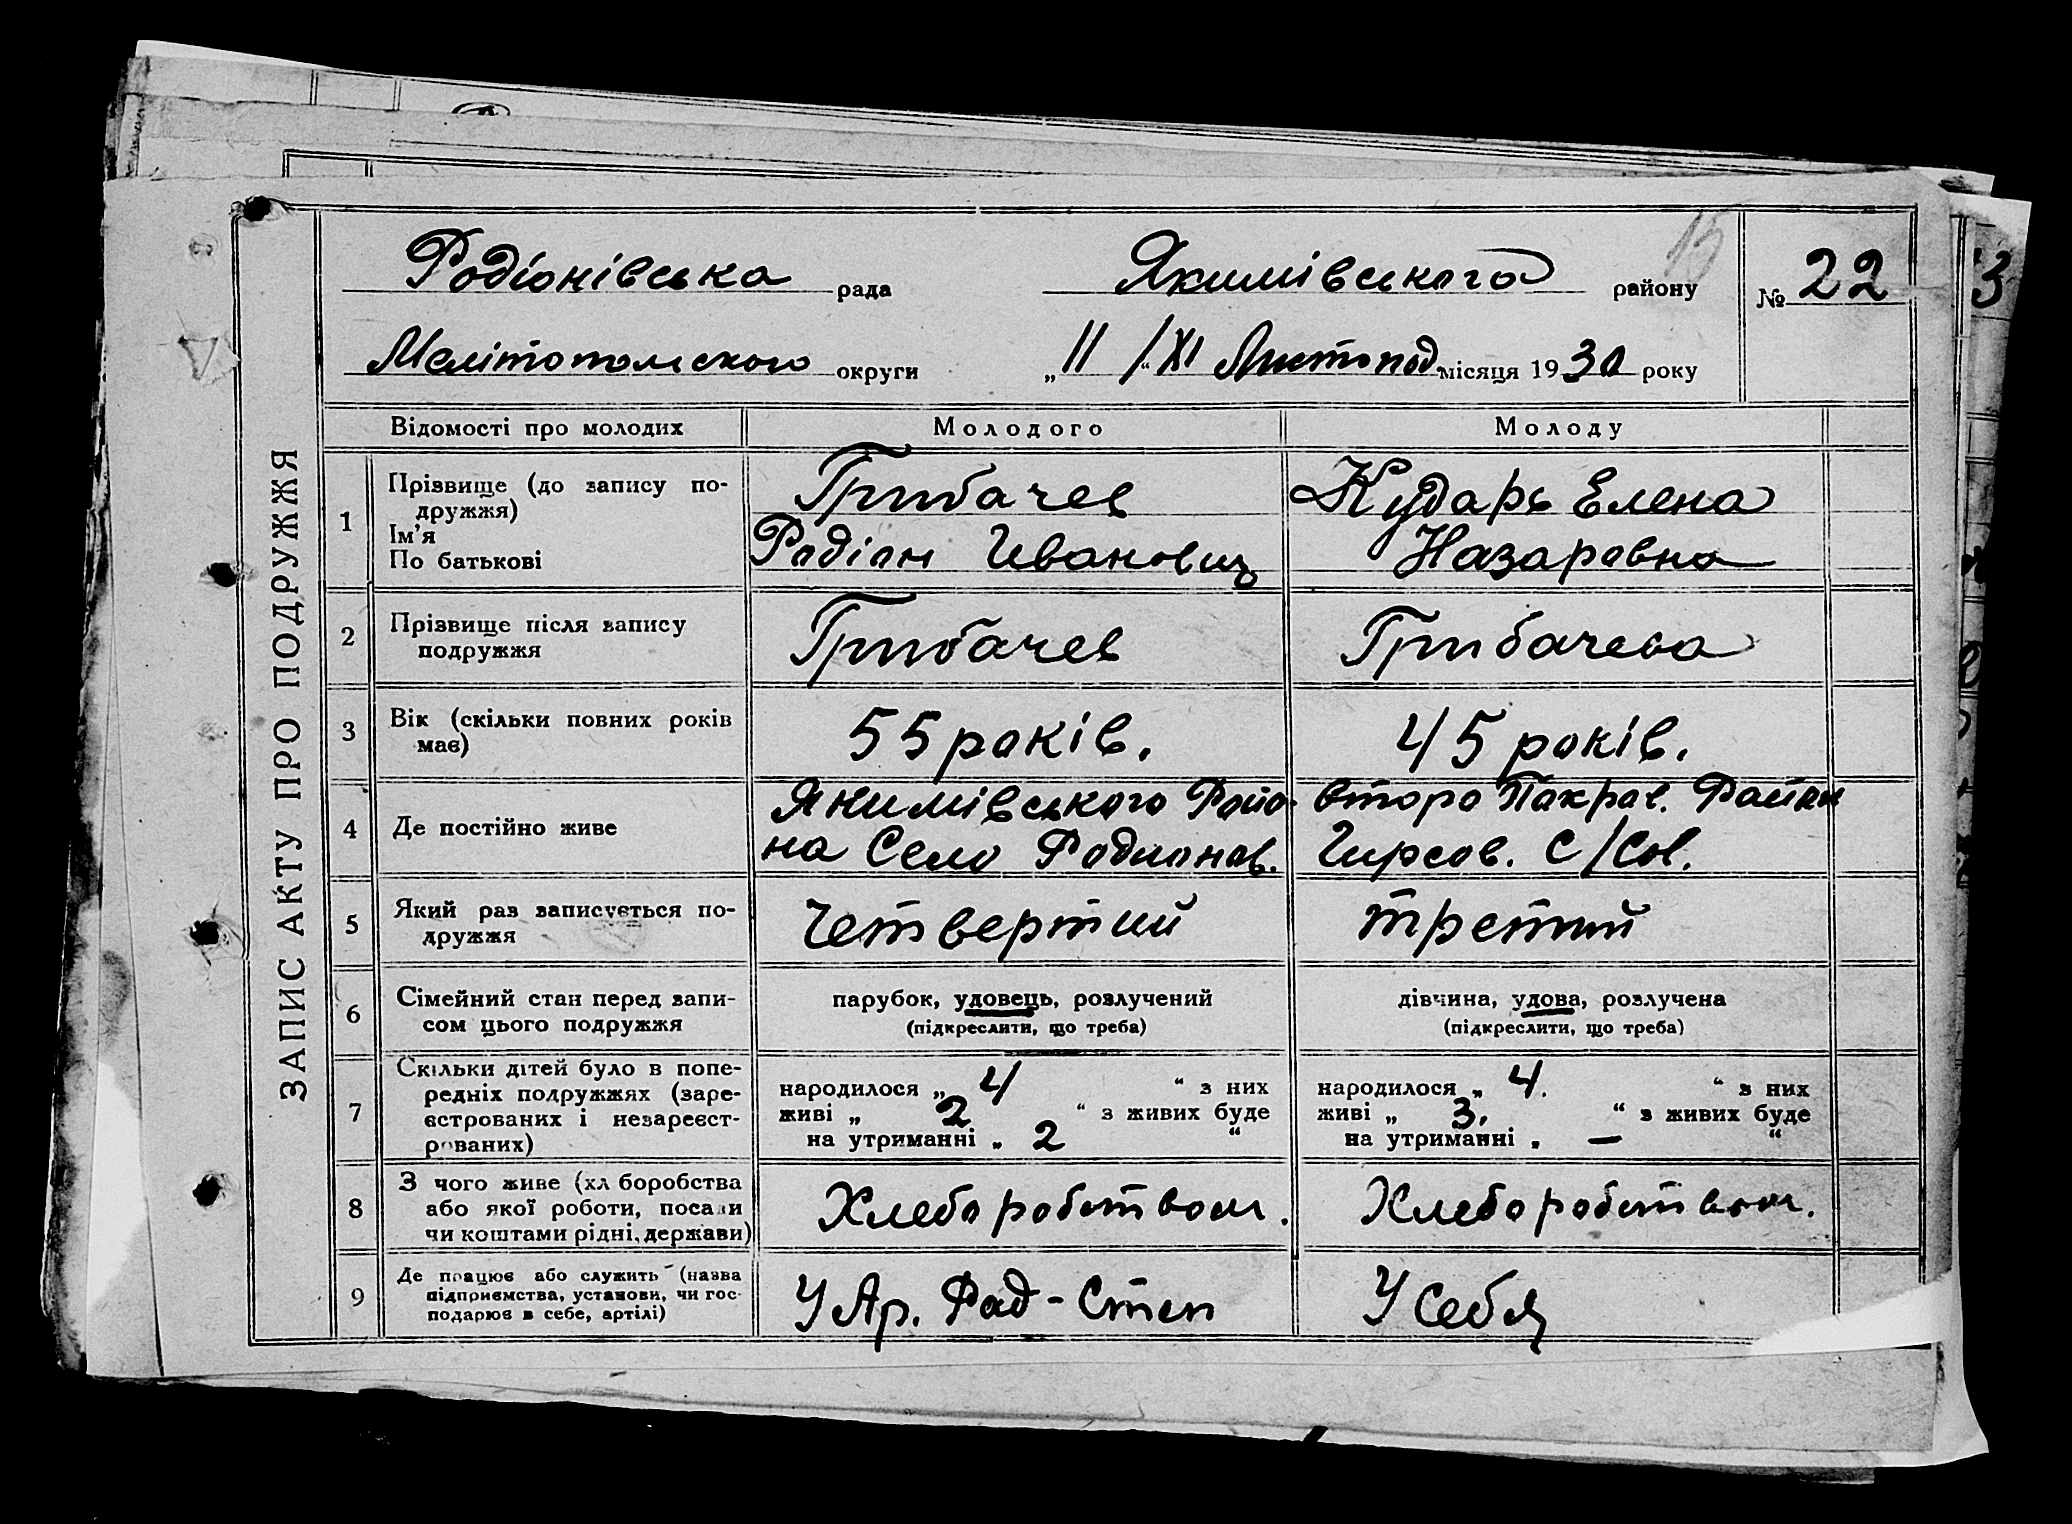 ЗАПИС АКТУ ПРО ПОДРУЖЖЯ
15
Родіонівська рада Якимівського району № 22
Мелітопольского округи „11 /XI“ Листопод місяця 1930 року
Відомості про молодих Молодого Молоду
1 Прізвище (до запису по-
дружжя)
Ім’я
По батькові
Грибачев
Родіон Иванович
Кударь Елена
Назаровна
2 Прізвище після запису
подружжя
Грибачев
Грибачева
3 Вік (скільки повних років
має)
55 років.
45 років.
4 Де постійно живе
Якимівського Райо-
на Село Родионов.
второ Покров. Район
Гирсов. С/Сов.
5 Який раз записується по-
дружжя
Четвертий
третий
6 Сімейний стан перед запи-
сом цього подружжя
парубок, удовець, розлучений
(підкреслити, що треба)
дівчина, удова, розлучена
(підкреслити, що треба)
7 Скільки дітей було в попе-
редніх подружжях (заре-
єстрованих і незареєст-
рованих)
народилося „ 4 “ з них
живі „ 2 “ з живих буде
на утриманні „ 2 “
народилося „ 4. “ з них
живі „ 3. “ з живих буде
на утриманні „ — “
8 З чого живе (хл боробства
або якої роботи, посади
чи коштами рідні, держави)
Хлеборобством.
Хлеборобством.
9 Де працює або служить (назва
підприємства, установи, чи гос-
подарює в себе, артілі)
У Ар. Рад-Степ
У Себя
3